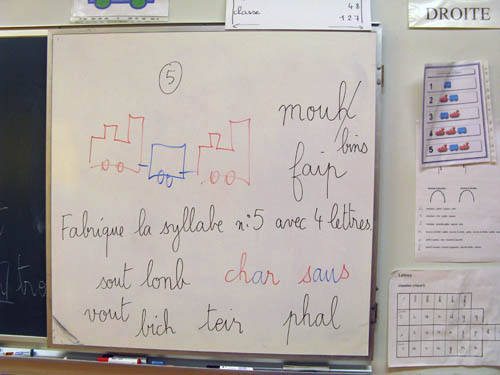 classe
48
127
DROITE
5
mouh
bins
faip
Fabrique la syllabe n:5 avec 4 lettres.
sout lonb char saus
vout bich teir phal
1
2
3
4
5
Lettres